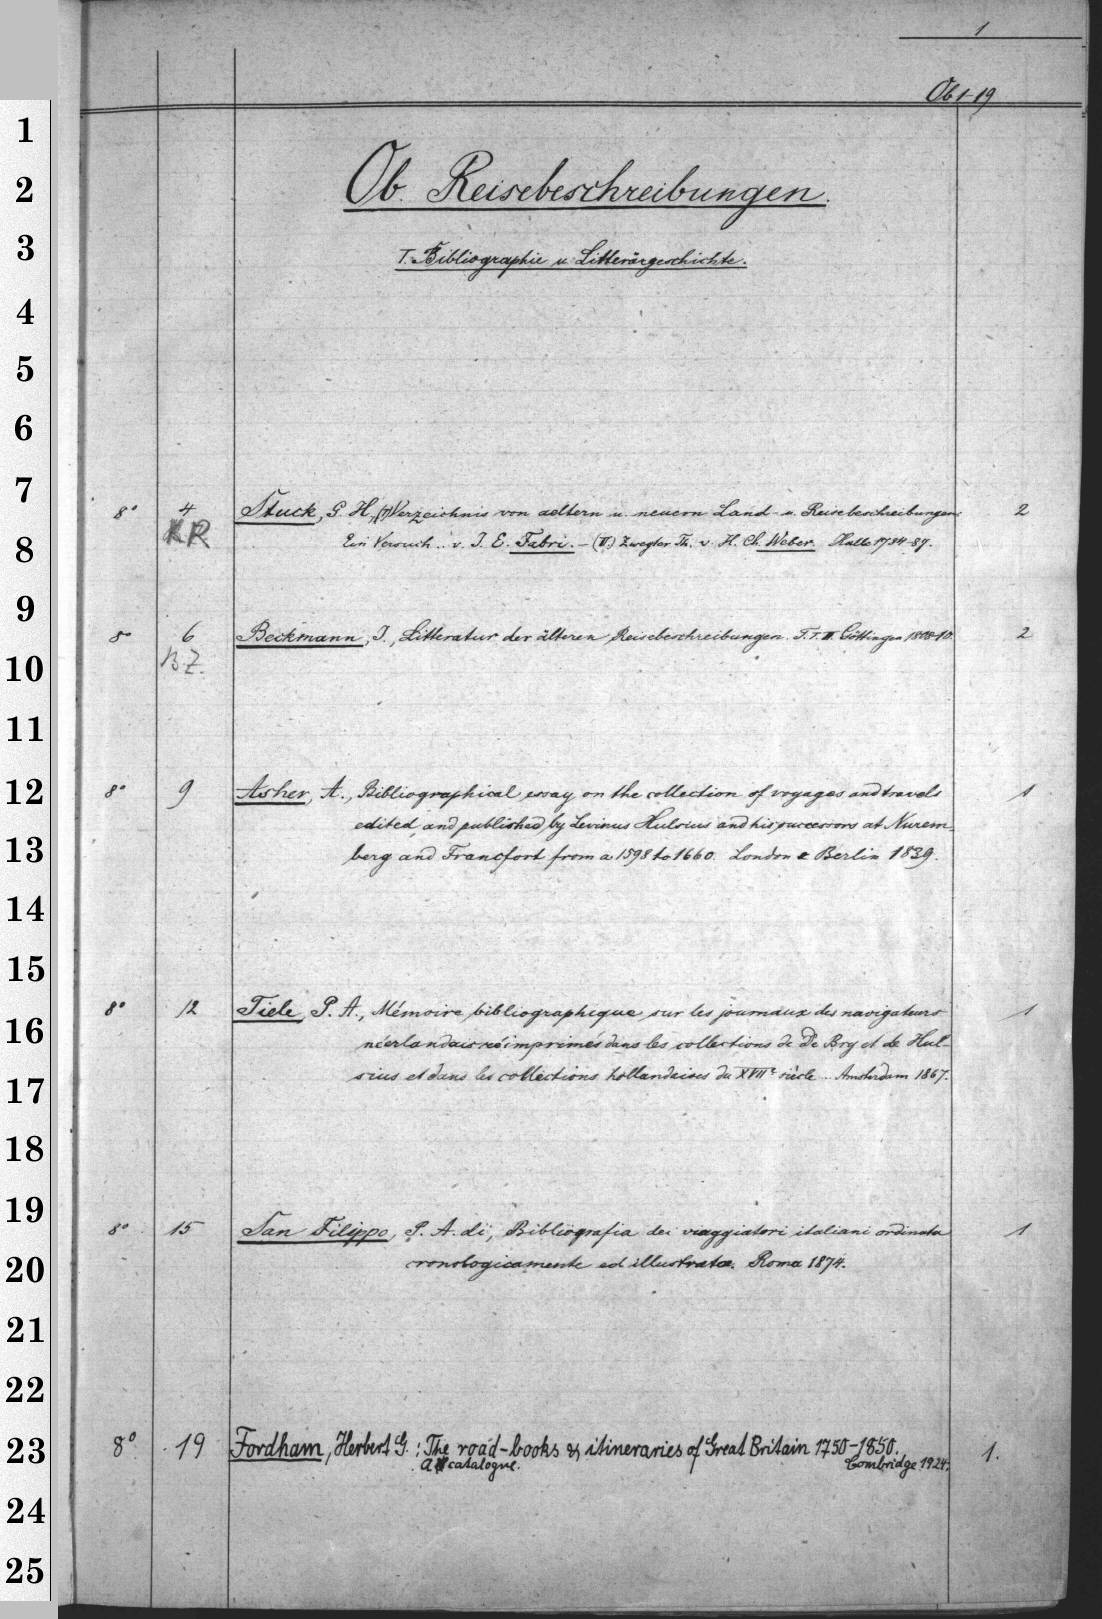 1
Ob 1-19
Ob. Reisebeschreibungen.
I. Bibliographie u. Litterärgeschichte.
8° 4 Stuck, G. H., (I) Verzeichnis von aeltern u. neuern Land- u. Reisebeschreibungen. 2
KR Ein Versuch.. v. J. E. Fabri. – (II.) Zweyter Th. v. H. Ch. Weber. Halle 1784-87.
8° 6 Beckmann, J., Litteratur der älteren Reisebeschreibungen. T. I. II. Göttingen 1808-10. 2
BZ.
8° 9 Asher, A., Bibliographical essay on the collection of voyages and travels 1
edited and published by Levinus Hulsius and his successors at Nurem-
berg and Francfort from a 1598 to 1660. London & Berlin 1839.
8° 12 Tiele, P. A., Mémoire bibliographique sur les journaux des navigateurs 1
néerlandais réimprimés dans les collections de De Bry et de Hul-
sius et dans les collections hollandaises du XVIIe siècle.. Amsterdam 1867.
8° 15 San Filippo, P. A. di, Bibliografia dei viaggiatori italiani ordinata 1
cronologicamente ed illustrata. Roma 1874.
8° 19 Fordham, Herbert G.: The road-books & itineraries of Great Britain 1750-1850. 1.
A catalogue. Cambridge 1924.
1
2
3
4
5
6
7
8
9
10
11
12
13
14
15
16
17
18
19
20
21
22
23
24
25